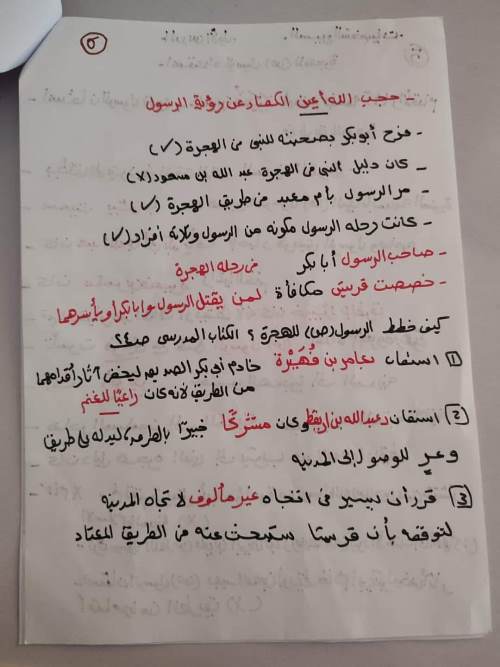 ٥
- حجب الله أعين الكفار عن رؤية الرسول
- فرح أبو بكر بصحبته للنبي في الهجرة (✓)
- كان دليل النبي في الهجرة عبد الله بن مسعود (x)
- مر الرسول بأم معبد في طريق الهجرة (✓)
- كانت رحله الرسول مكونه من الرسول وثلاثة أفراد (✓)
- صاحب الرسول أبا بكر في رحله الهجرة
- خصصت قريش مكافأة لمن يقتل الرسول وابا بكر أو يأسرهما
كيف خطط الرسول (ص) للهجرة ؟ الكتاب المدرسى صـ
1 استعان بعامر بن فُهَيْرة خادم أبي بكر الصديق ليخفى آثار أقدامهما
من الطريق لأنه كان راعيًا للغنم
2 استعان بعبد الله بن أريقط وكان مشركًا خبيرًا بالطرق ليدله على طريق
وعرٍ للوصول إلى المدينه
3 قرر أن يسير فى اتجاه غير مألوف لا تجاه المدينه
لتوقعه بأن قريشا ستبحث عنه في الطريق المعتاد